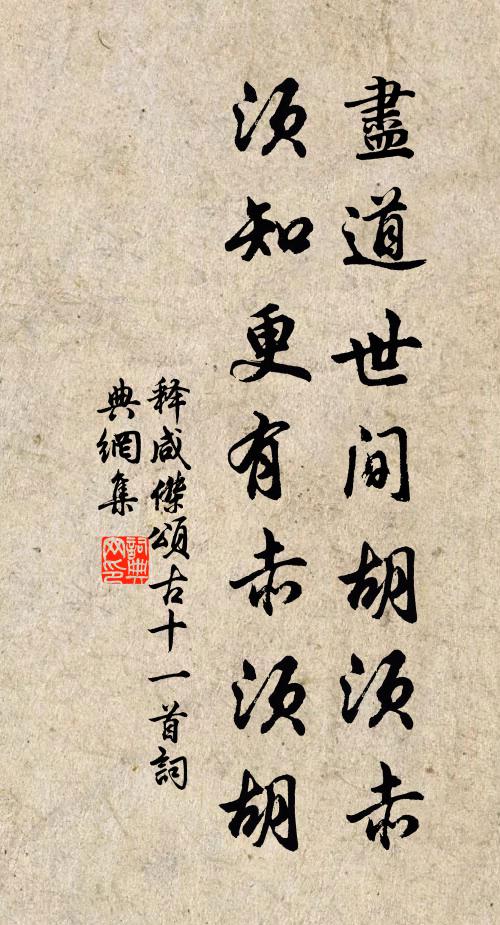 盡道世間胡須赤
須知更有赤須胡
释咸傑頌古十一首詞
典網集
詞典
网印